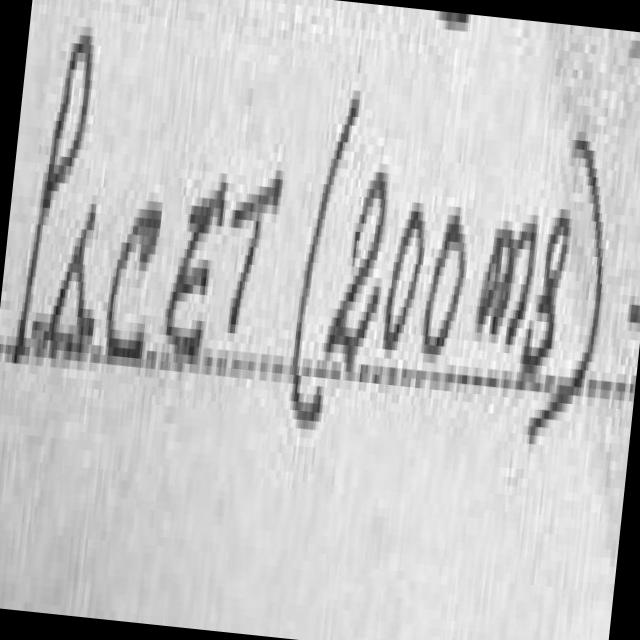 LACET (200mg)